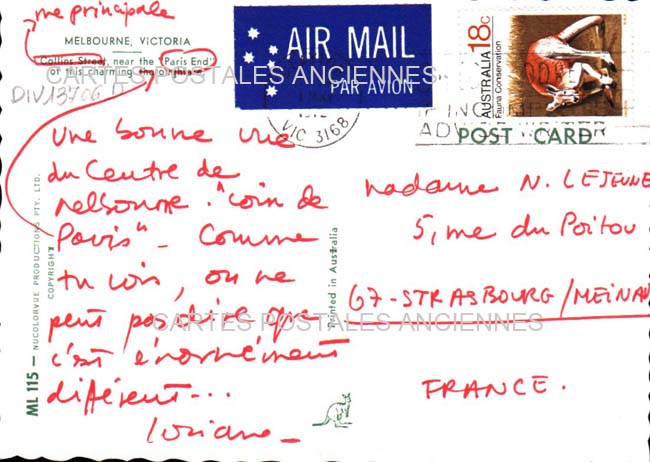 rue principale
MELBOURNE, VICTORIA
Collins Street, near the "Paris End"
of this charming
CARTES POSTALES ANCIENNES
DIV13706
AIR MAIL
PAR AVION
VIC 3168
AUSTRALIA 18c
Fauna Conservation
POST CARD
Une bonne vue
du Centre de
Melbourne. "coin de
Paris" - Comme
tu vois, on ne
peut pas dire que
c'est énormément
différent...
Madame N. LEJEUNE
5, rue du Poitou
67-STRASBOURG/MEINAU
FRANCE.
CARTES POSTALES ANCIENNES
ML 115 — NUCOLORVUE PRODUCTIONS PTY. LTD.
COPYRIGHT
Printed in Australia